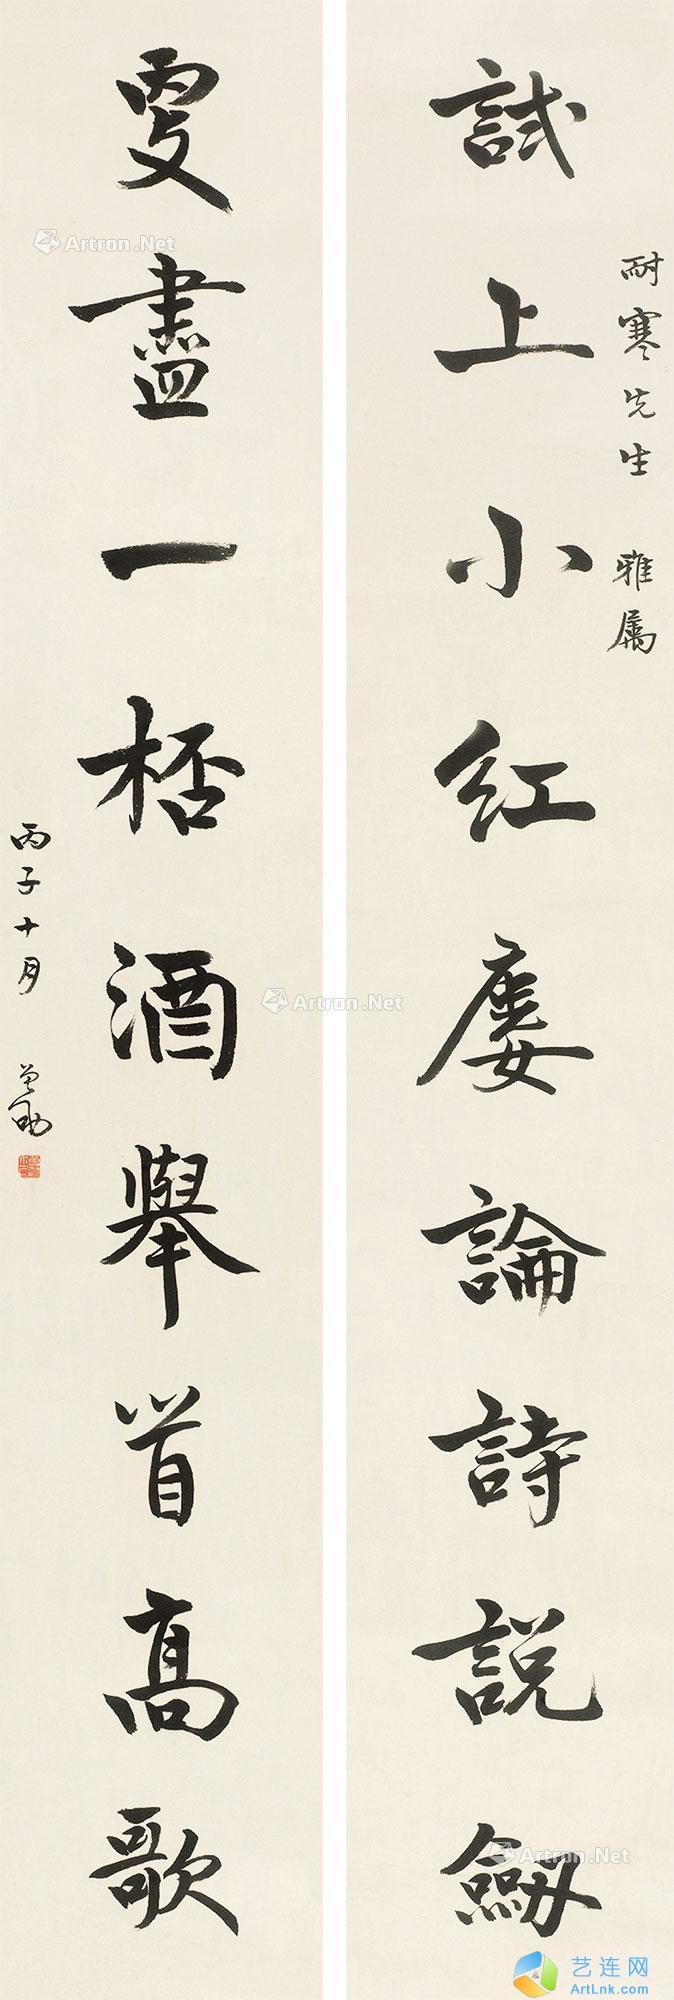 耐寒先生 雅属
試上小紅廔論詩説劒
㪅盡一桮酒舉首高歌
丙子十月
Artron.Net
Artron.Net
Artron.Net
艺连网
ArtLnk.com